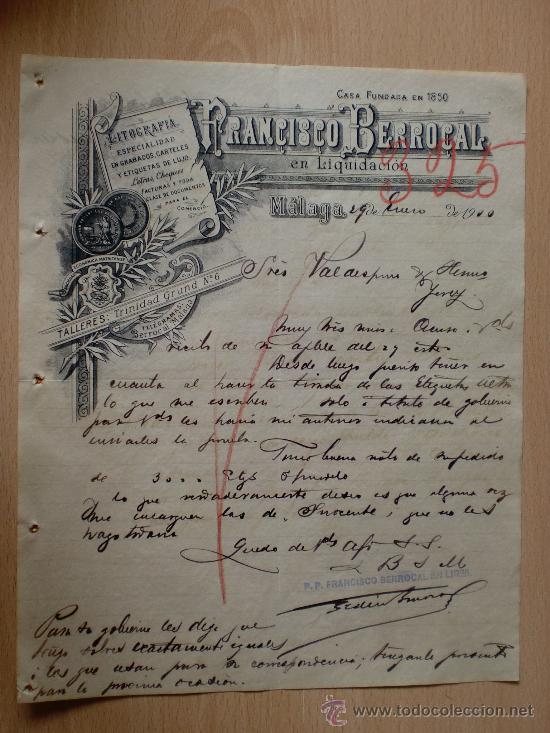 CASA FUNDADA EN 1850
FRANCISCO BERROCAL
en Liquidación
325
LITOGRAFIA
ESPECIALIDAD
EN GRABADOS, CARTELES
Y ETIQUETAS DE LUJO.
Letras, Cheques
FACTURAS Y TODA
CLASE DE DOCUMENTOS
PARA EL
COMERCIO.
TALLERES: Trinidad Grund Nº 6
TELEGRAMAS
Berrocal Málaga
Málaga, 29 de Enero de 1900
Sres Valdespino y Hermo
Jerez
Muy Sres mios: Acuso Vds
recibo de su apble del 27 este
Desde luego puedo tener en
cuenta al hacer la tirada de las Etiquetas
lo que me escriben solo á titulo de gobierno
para Vds les hacia mi anterior
la prueba.
Tomo buena nota de su pedido
de 3000
lo que verdaderamente deseo es que alguna vez
me encarguen las de "Inocente", que no les
hago
Quedo de Vds Afo S. S.
Q B S M
P. P. FRANCISCO BERROCAL EN LIQON.
Para su gobierno les dejo que
tengo sobres exactamente iguales
á los que usan para su correspondencia; tenganlo presente
para la proxima ocasion.
todocoleccion
www.todocoleccion.net